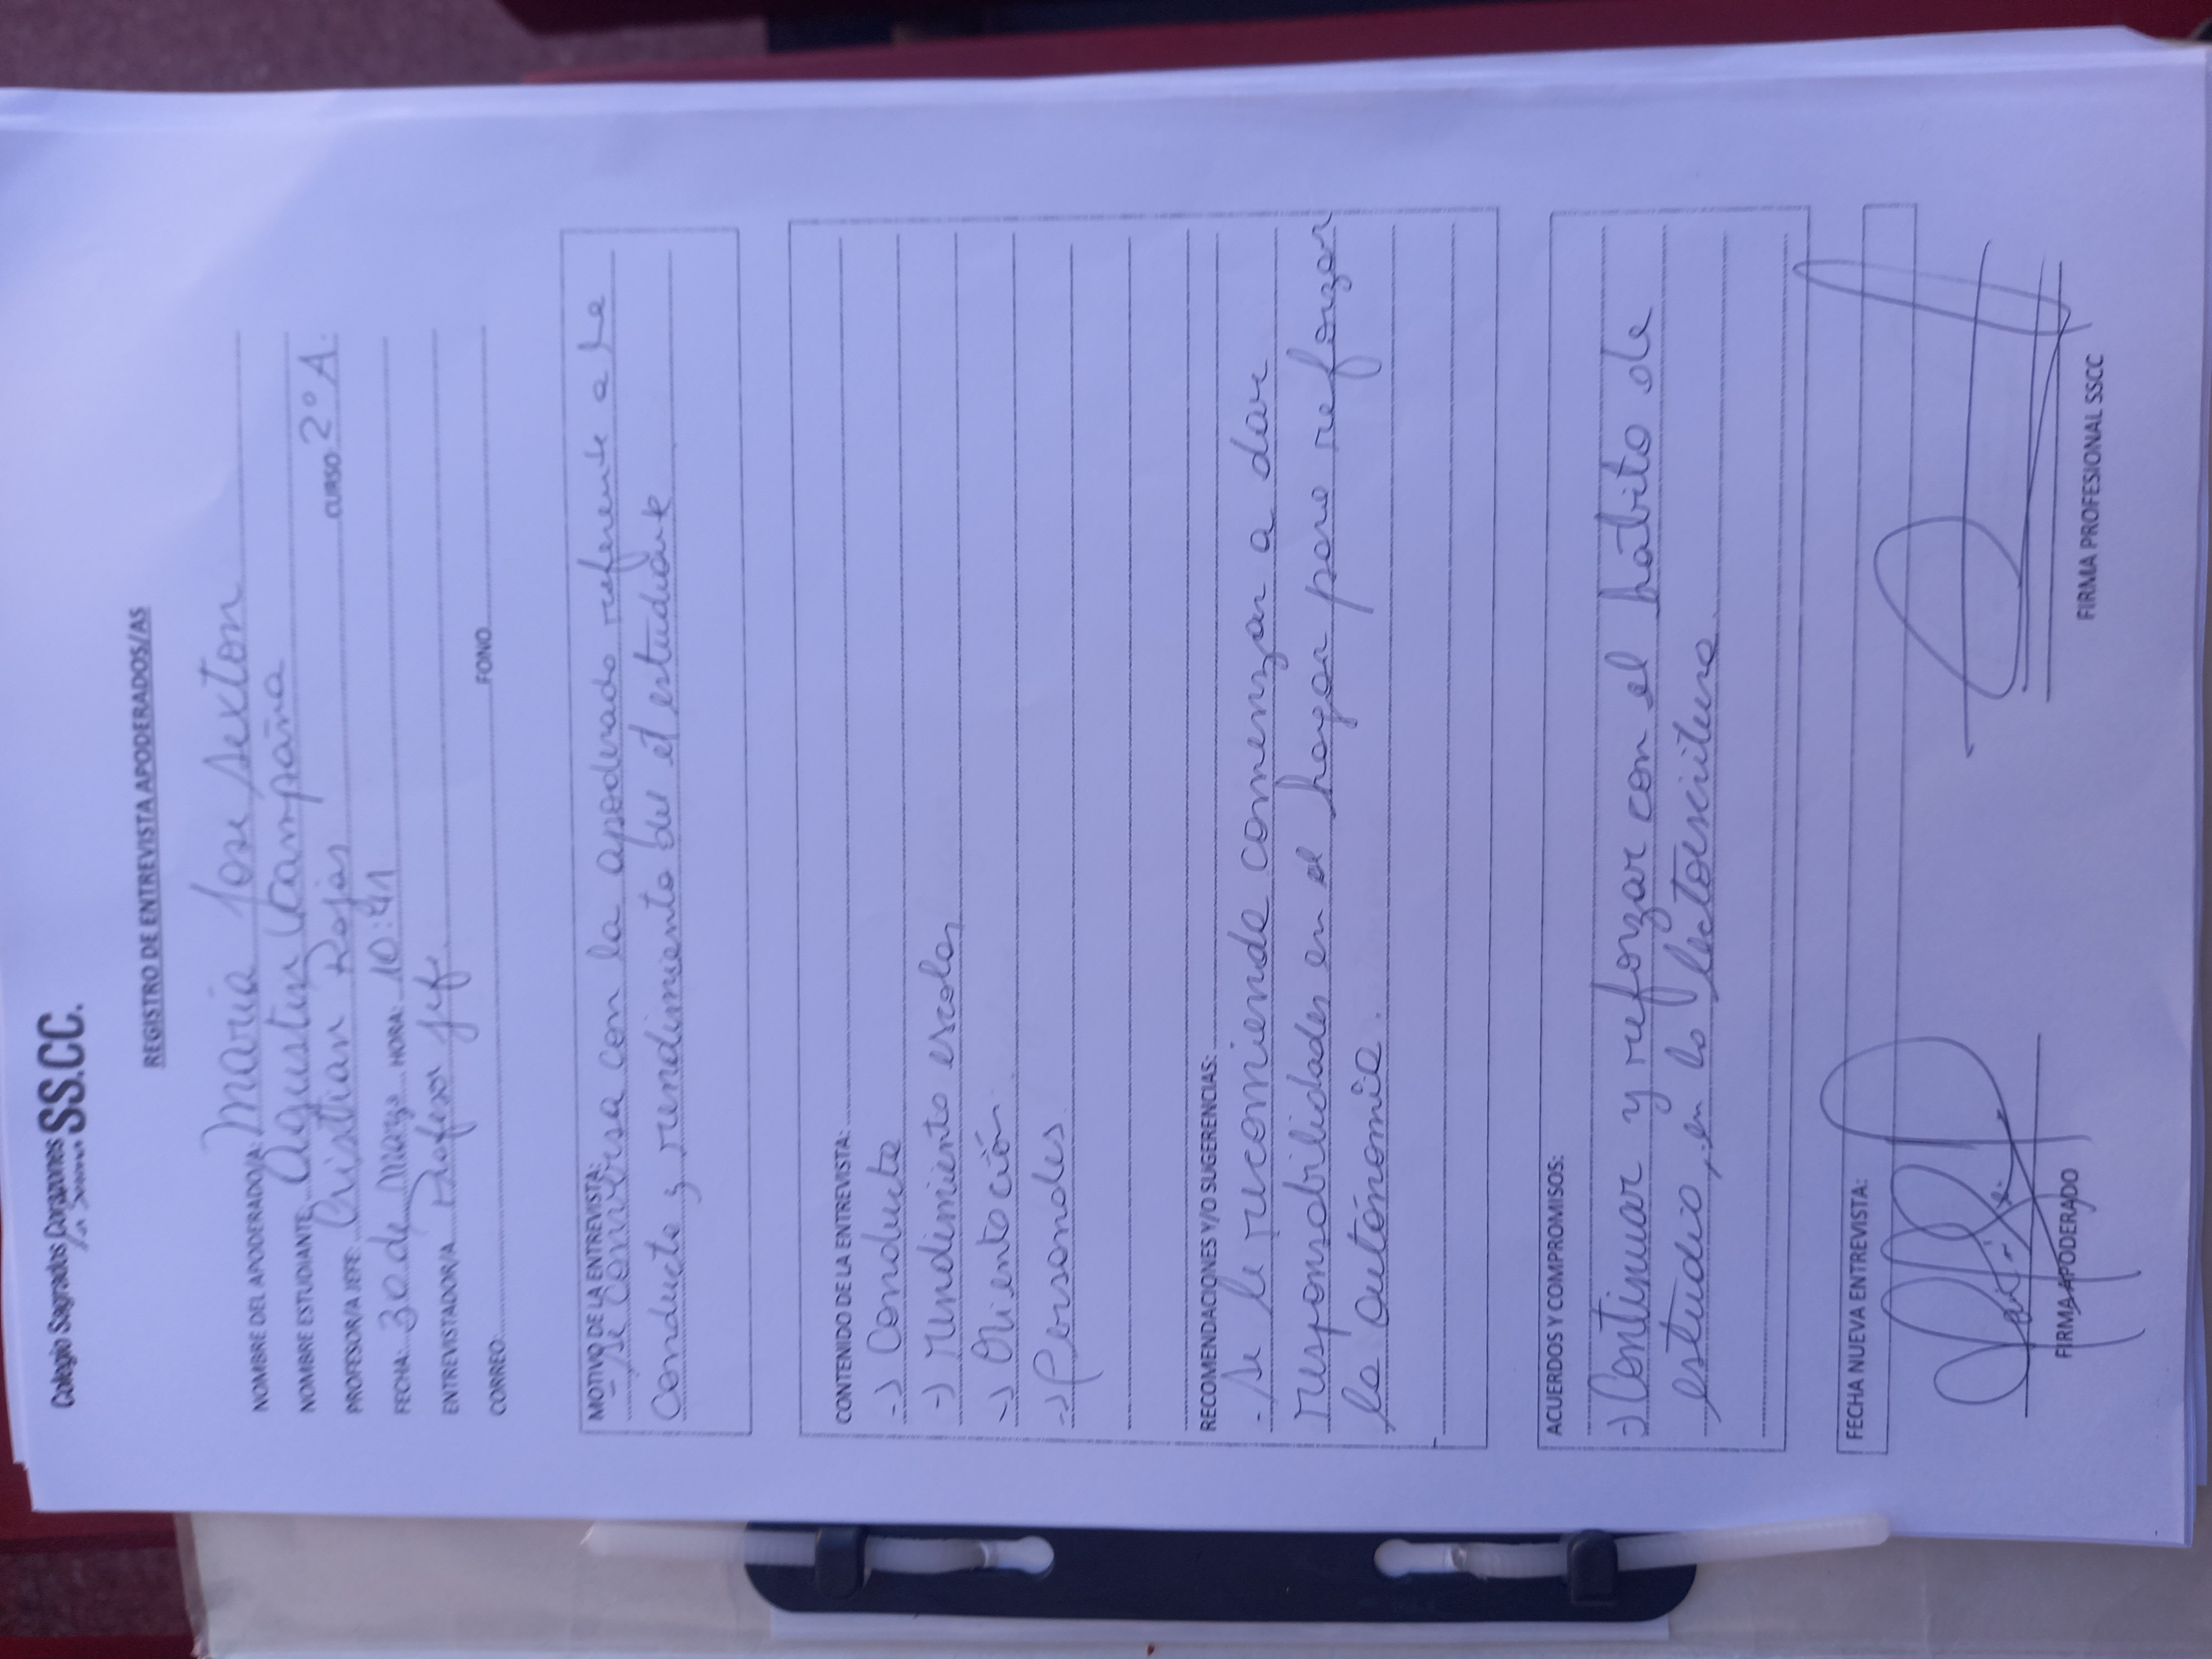 Colegio Sagrados Corazones SS.CC.
REGISTRO DE ENTREVISTA APODERADOS/AS
NOMBRE DEL APODERADO/A: Maria Jose Sexton
NOMBRE ESTUDIANTE: Agustin Campaña
PROFESOR/A JEFE: Cristian Rojas CURSO: 2º A.
FECHA: 30 de Marzo HORA: 10:41
ENTREVISTADOR/A Profesor jefe
CORREO FONO
MOTIVO DE LA ENTREVISTA:
- Se conversa con la apoderado referente a la
conducta y rendimiento del estudiante
CONTENIDO DE LA ENTREVISTA:
-) Conducta
-) rendimiento escolar
-) Orientación
-) Personales.
RECOMENDACIONES Y/O SUGERENCIAS:
- Se le recomienda comenzar a dar
responsabilidades en el hogar para reforzar
la autónomia.
ACUERDOS Y COMPROMISOS:
-) Continuar y reforzar con el hábito de
estudio, en la lectoescritura.
FECHA NUEVA ENTREVISTA:
FIRMA APODERADO FIRMA PROFESIONAL SSCC